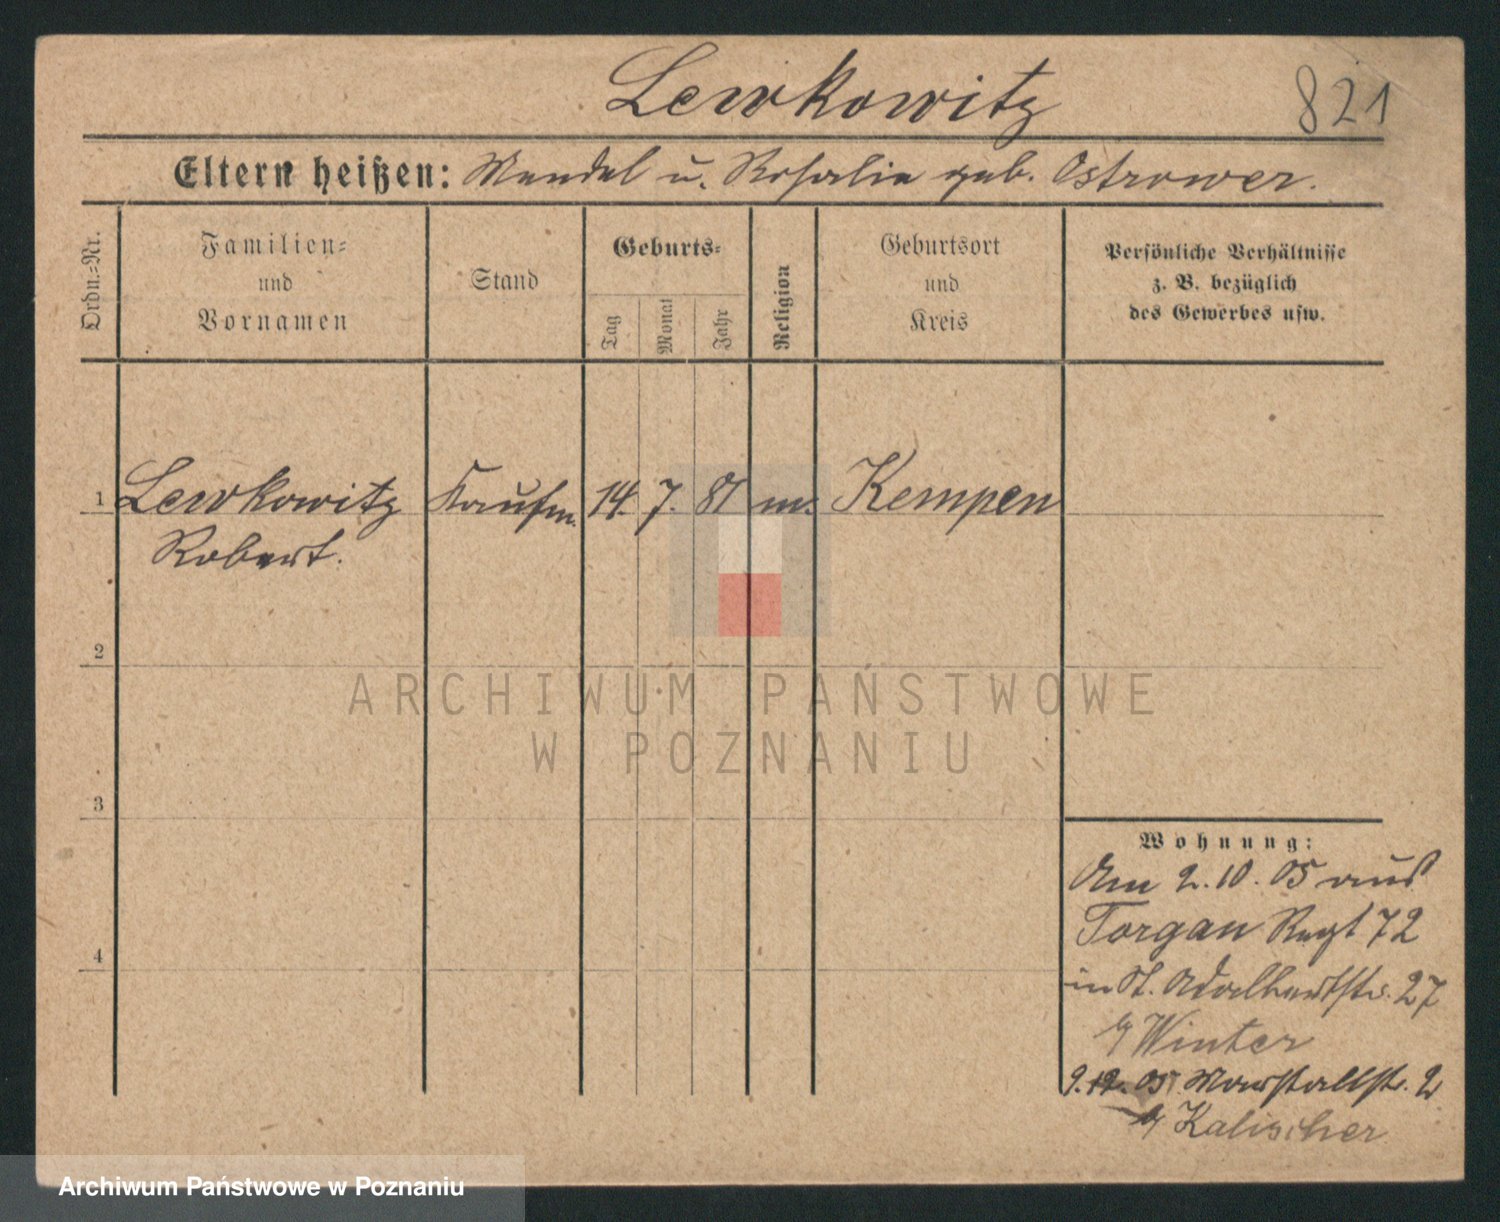 Lewkowitz
821
Eltern heißen: Mendel u. Rosalie geb. Ostrower.
Ordn.-Nr.
Familien-
und
Vornamen
Stand
Geburts-
Tag
Monat
Jahr
Religion
Geburtsort
und
Kreis
Persönliche Verhältnisse
z. B. bezüglich
des Gewerbes usw.
1 Lewkowitz Kaufm. 14. 7. 81 m. Kempen
Robert.
2
3
4
Wohnung:
Am 2.10.05 aus
Torgau Regt 72
in St. Adalbertstr. 27
b/ Winter
9.12.05 Marstallstr. 2
b/ Kalischer
ARCHIWUM PAŃSTWOWE
W POZNANIU
Archiwum Państwowe w Poznaniu